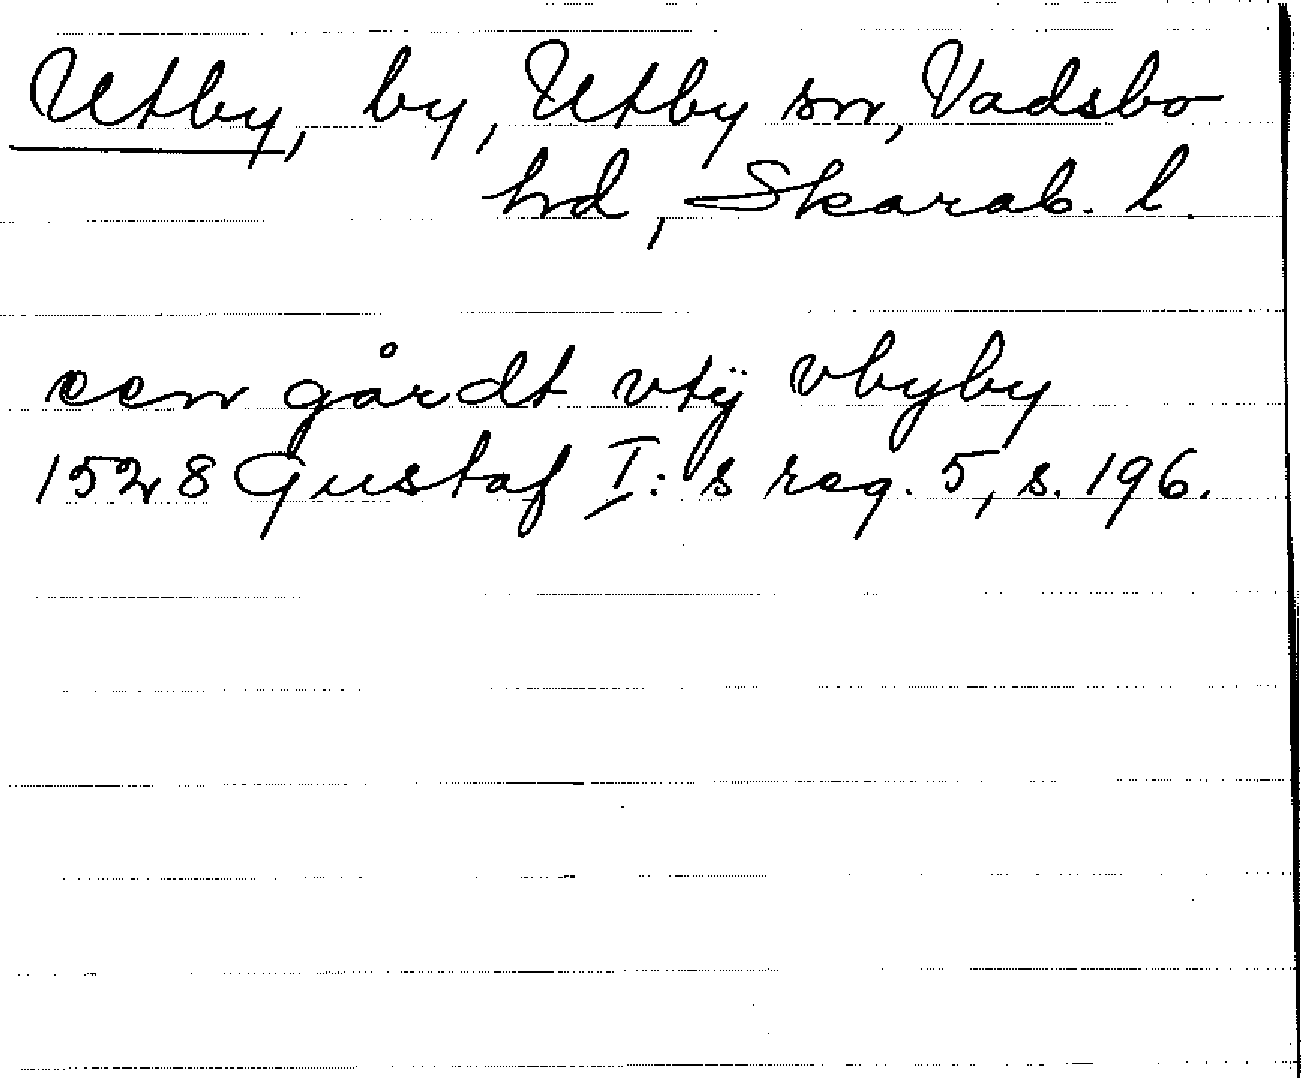 Utby, by, Utby sn, Vadsbo
hd, Skarab. l.
een gårdt vtÿ vbyby
1528 Gustaf I:s reg. 5, s. 196.